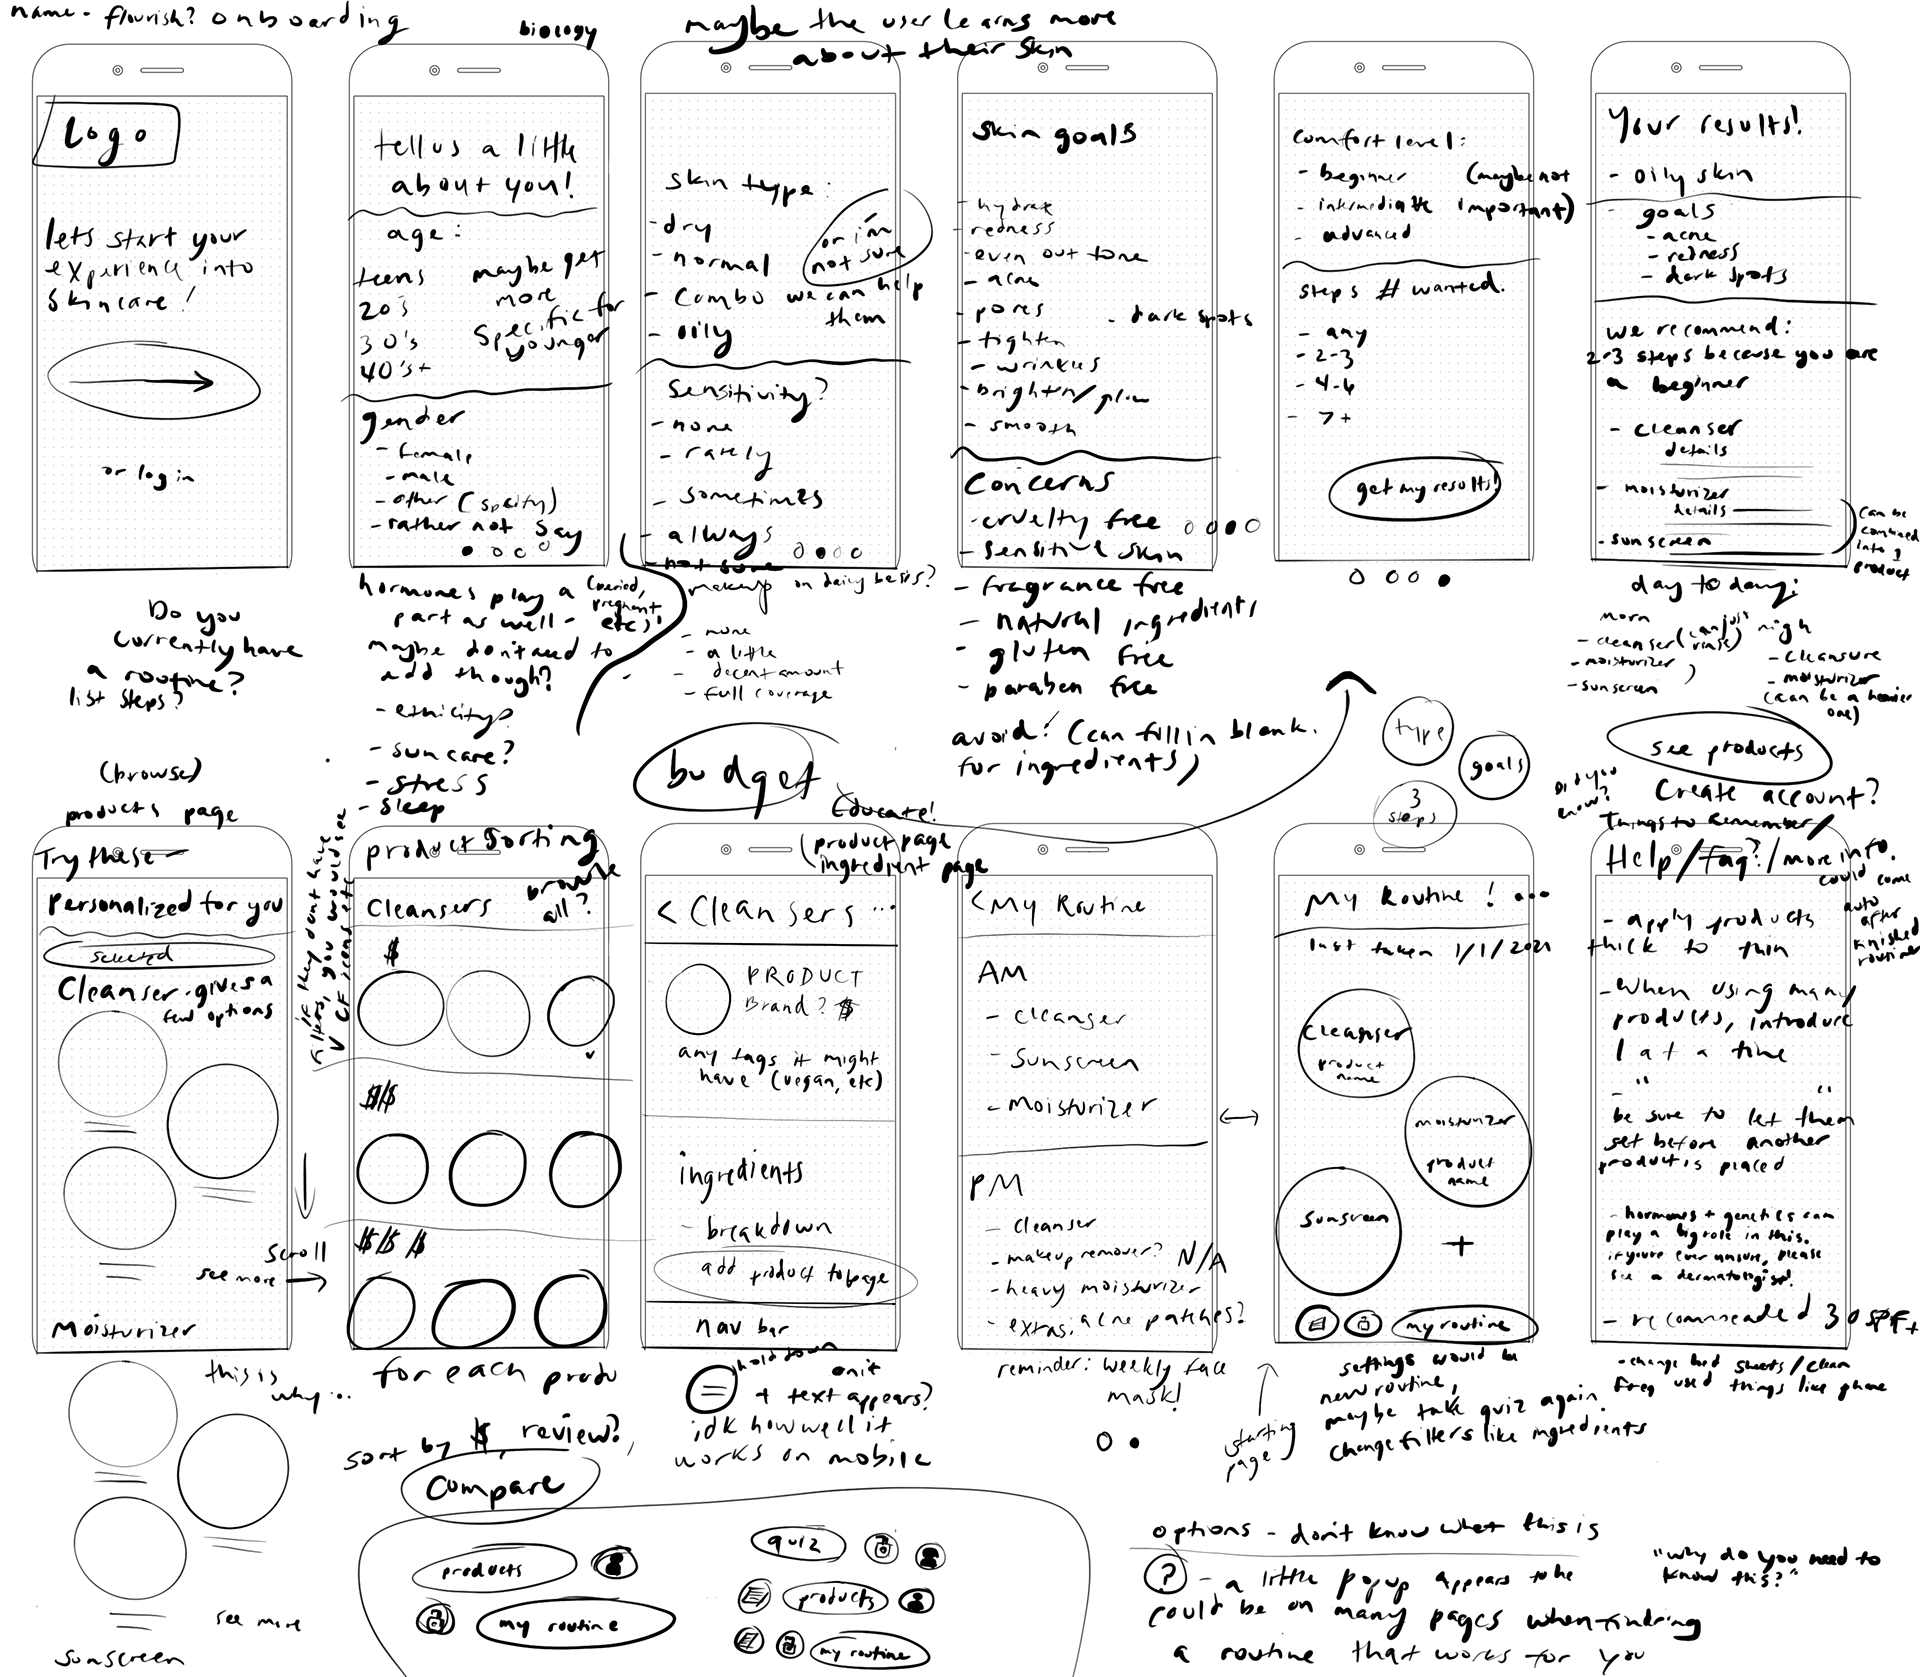 name - flourish? onboarding
biology
maybe the user learns more
about their skin
Logo
lets start your
experience into
skincare!
or log in
Do you
currently have
a routine?
list steps?
tell us a little
about you!
age:
teens
20's
30's
40's+
maybe get
more
specific for
younger
gender
- female
- male
- other (specify)
- rather not say
hormones play a (period,
pregnant
etc)!
part as well -
maybe don't need to
add though?
- ethicity?
- suncare?
- stress
- sleep
skin type:
- dry
- normal
- combo
- oily
or i'm
not sure
we can help
them
Sensitivity?
- none
- rarely
- sometimes
- always
- not sure
makeup on daily basis?
- none
- a little
- decent amount
- full coverage
budget
skin goals
- hydrate
- redness
- even out tone
- acne
- pores
- dark spots
- tighten
- wrinkles
- brighten/glow
- smooth
Concerns
- cruelty free
- sensitive skin
- fragrance free
- natural ingredients
- gluten free
- paraben free
avoid: (can fill in blank.
for ingredients)
comfort level:
- beginner
- intermediate
- advanced
(maybe not
important)
steps # wanted.
- any
- 2-3
- 4-6
- 7+
get my results!
type
goals
3
steps
Your results!
- oily skin
- goals
- acne
- redness
- dark spots
we recommend:
2-3 steps because you are
a beginner
- cleanser
details
- moisturizer
details
- sunscreen
can be
combined
into 1
product
day to day:
morn
- cleanser (can just
rinse)
- moisturizer
- sunscreen
nigh
- cleansure
- moisturizer
(can be a heavier
one)
see products
Create account?
Did you
know?
(browse)
products page
Try these
Personalized for you
selected
Cleanser - gives a
few options
Moisturizer
this is
why...
see more
sunscreen
scroll
see more
if they dont have
filters, you would see
V CF icons etc
product sorting
Cleansers
browse
all?
$
$/$
$/$ $
for each produ
sort by $, review?,
Compare
Educate!
(product page
ingredient page
< Cleansers ...
PRODUCT
Brand? $
any tags it might
have (vegan, etc)
ingredients
- breakdown
add product to page
nav bar
hold down
on it
+ text appears?
idk how well it
works on mobile
< My Routine
AM
- cleanser
- sunscreen
- Moisturizer
PM
- cleanser
- makeup remover? N/A
- heavy moisturizer
- extras: acne patches?
reminder: weekly face
mask!
My Routine! ...
last taken 1/1/2021
cleanser
product
name
moisturizer
product
name
sunscreen
+
my routine
starting
page
settings would be
new routine,
maybe take quiz again
change filters like ingredients
Things to Remember/
Help/faq?/more info.
could come
auto
after
finished
routine
- apply products
thick to thin
- When using many
products, introduce
1 at a time
- " "
be sure to let them
set before another
product is placed
- hormones + genetics can
play a big role in this.
if you're ever unsure, please
see a dermatologist!
- recommeaded 30 SPF+
- change bed sheets/clean
freq used things like phone
products
my routine
quiz
products
my routine
options - don't know what this is
? - a little popup appears to be
could be on many pages when finding
a routine that works for you
"why do you need to
know this?"